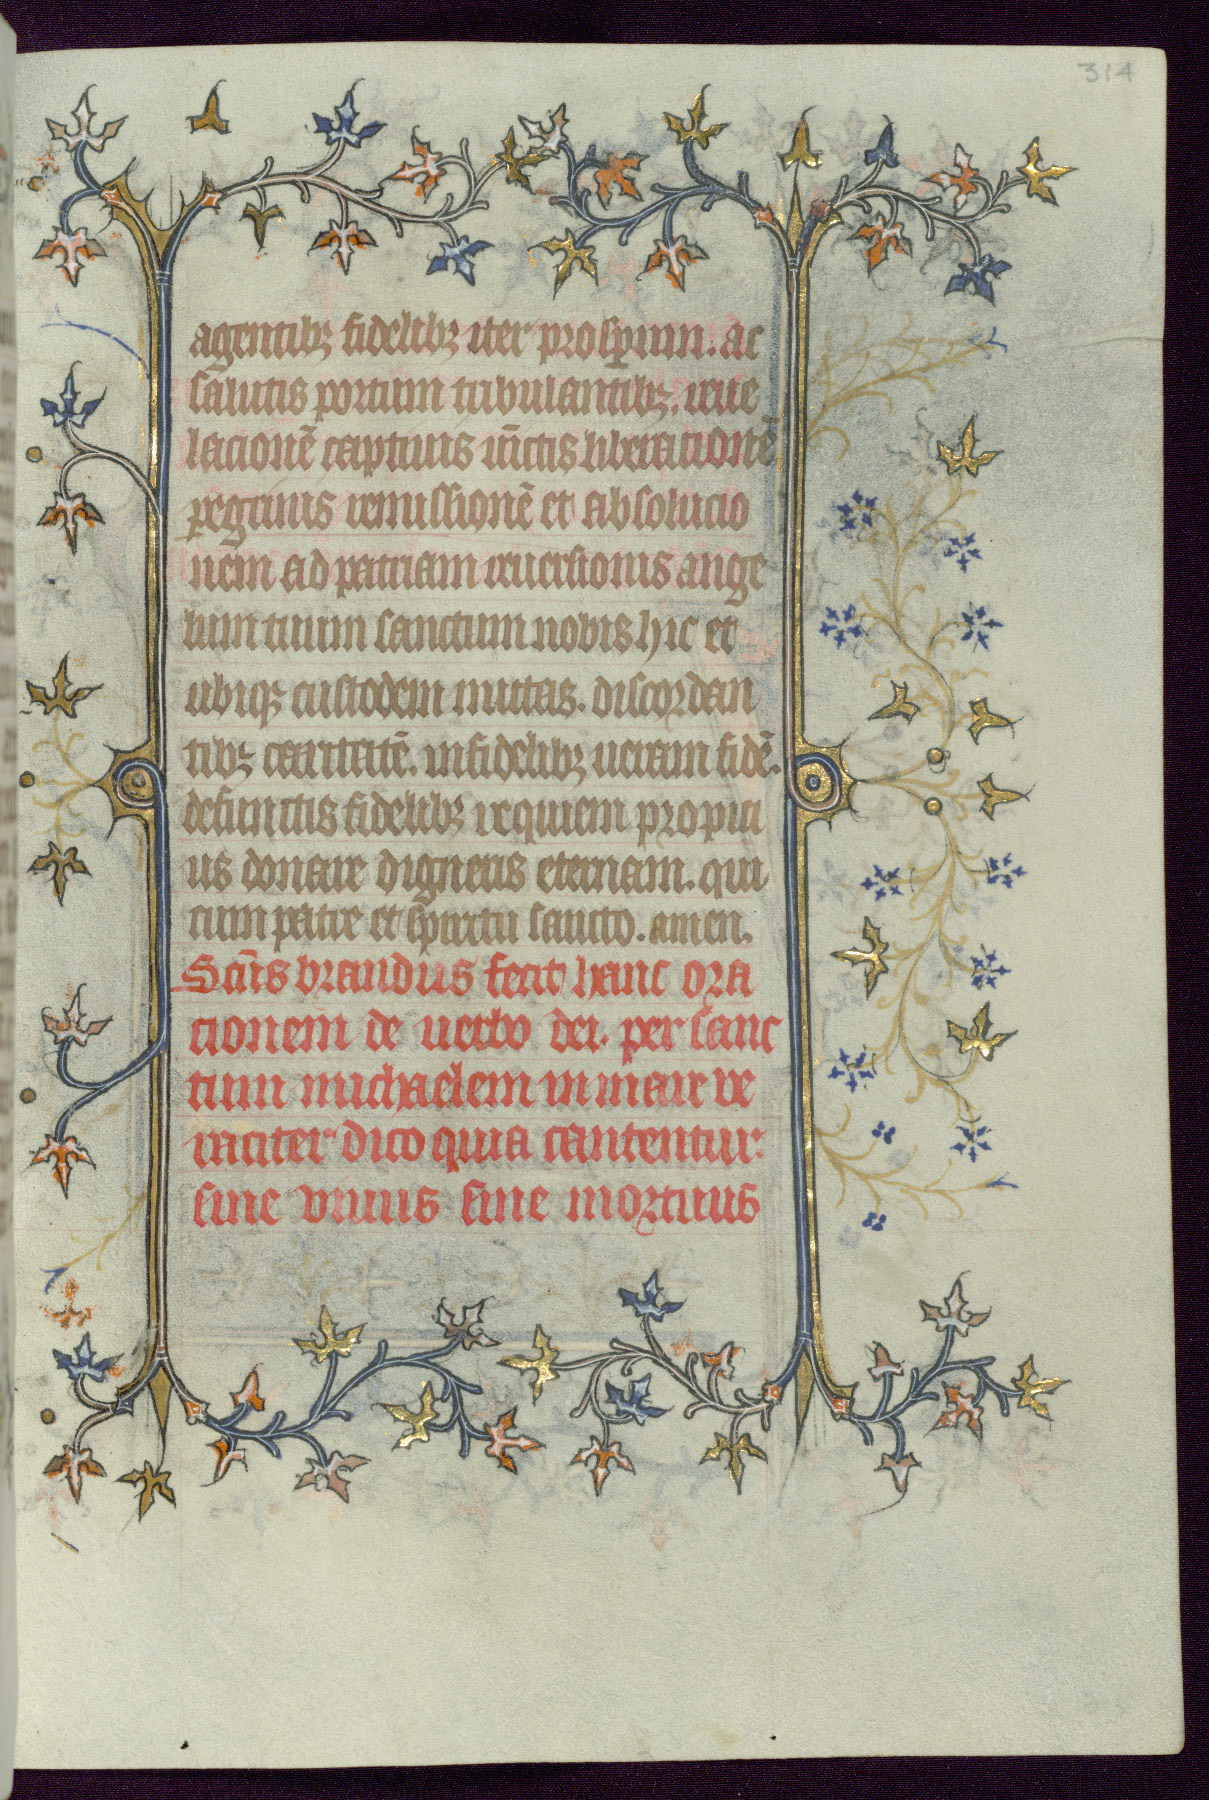 314
agentibꝫ fidelibꝫ iter prosꝑum. ac
salutis portum tribulantibꝫ. reue
lacionē captiuis uīctis liberationē
ꝑegrinis remissionē et absolucio
nem ad patriam reuersionis ange
lum tuum sanctum nobis hic et
ubiqꝫ custodem mittas. discordan
tibꝫ caritatē. infidelibꝫ ueram fidē.
defunctis fidelibꝫ requiem propici
us donare digneris eternam. qui
cum patre et spiritu sancto. amen.
Scūs brandus fecit hanc ora
tionem de uerbo dei. per sanc
tum michaelem in mare ve
raciter dico quia cantentur
siue viuus siue mortuus